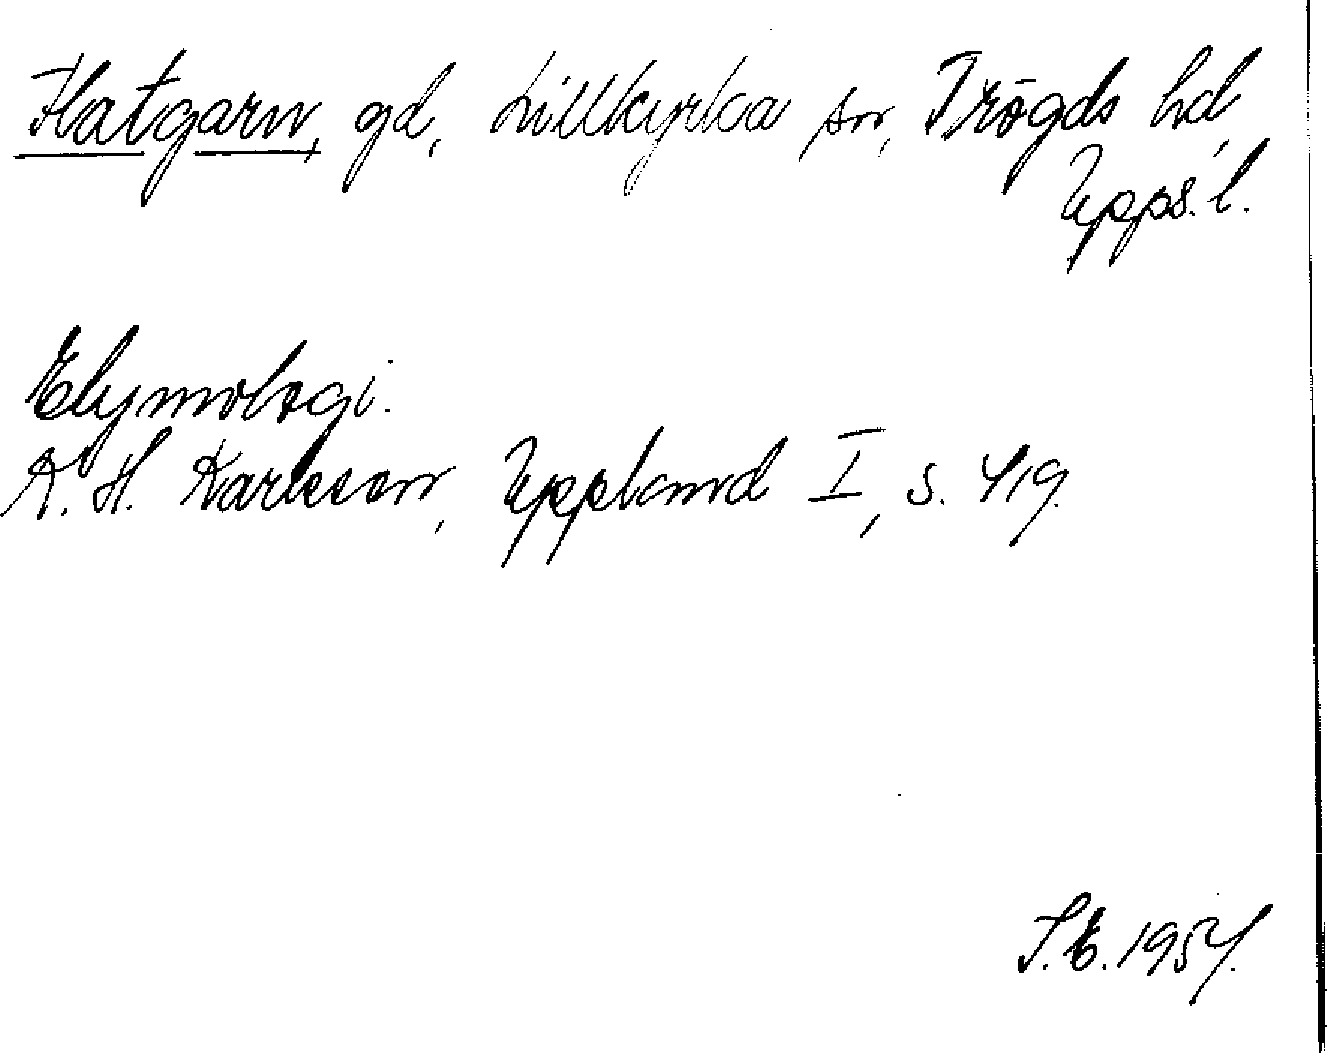 Hatgarn, gd, Lillkyrka sn, Trögds hd,
Upps. l.
Etymologi.
K. H. Karlsson, Uppland I, s. 419.
S.E. 1954.